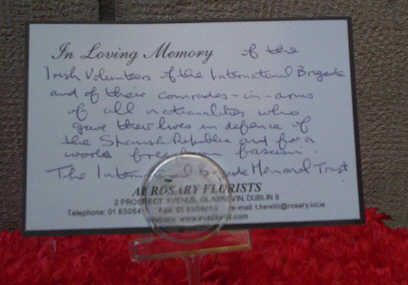 In Loving Memory of the
Irish Volunteers of the International Brigade
and of their comrades-in-arms
of all nationalities who
gave their lives in defence of
the Spanish Republic and for a
world free from fascism.
The International Brigade Memorial Trust
ROSARY FLORISTS
2 PROSPECT AVENUE, GLASNEVIN, DUBLIN 9
Telephone: 01